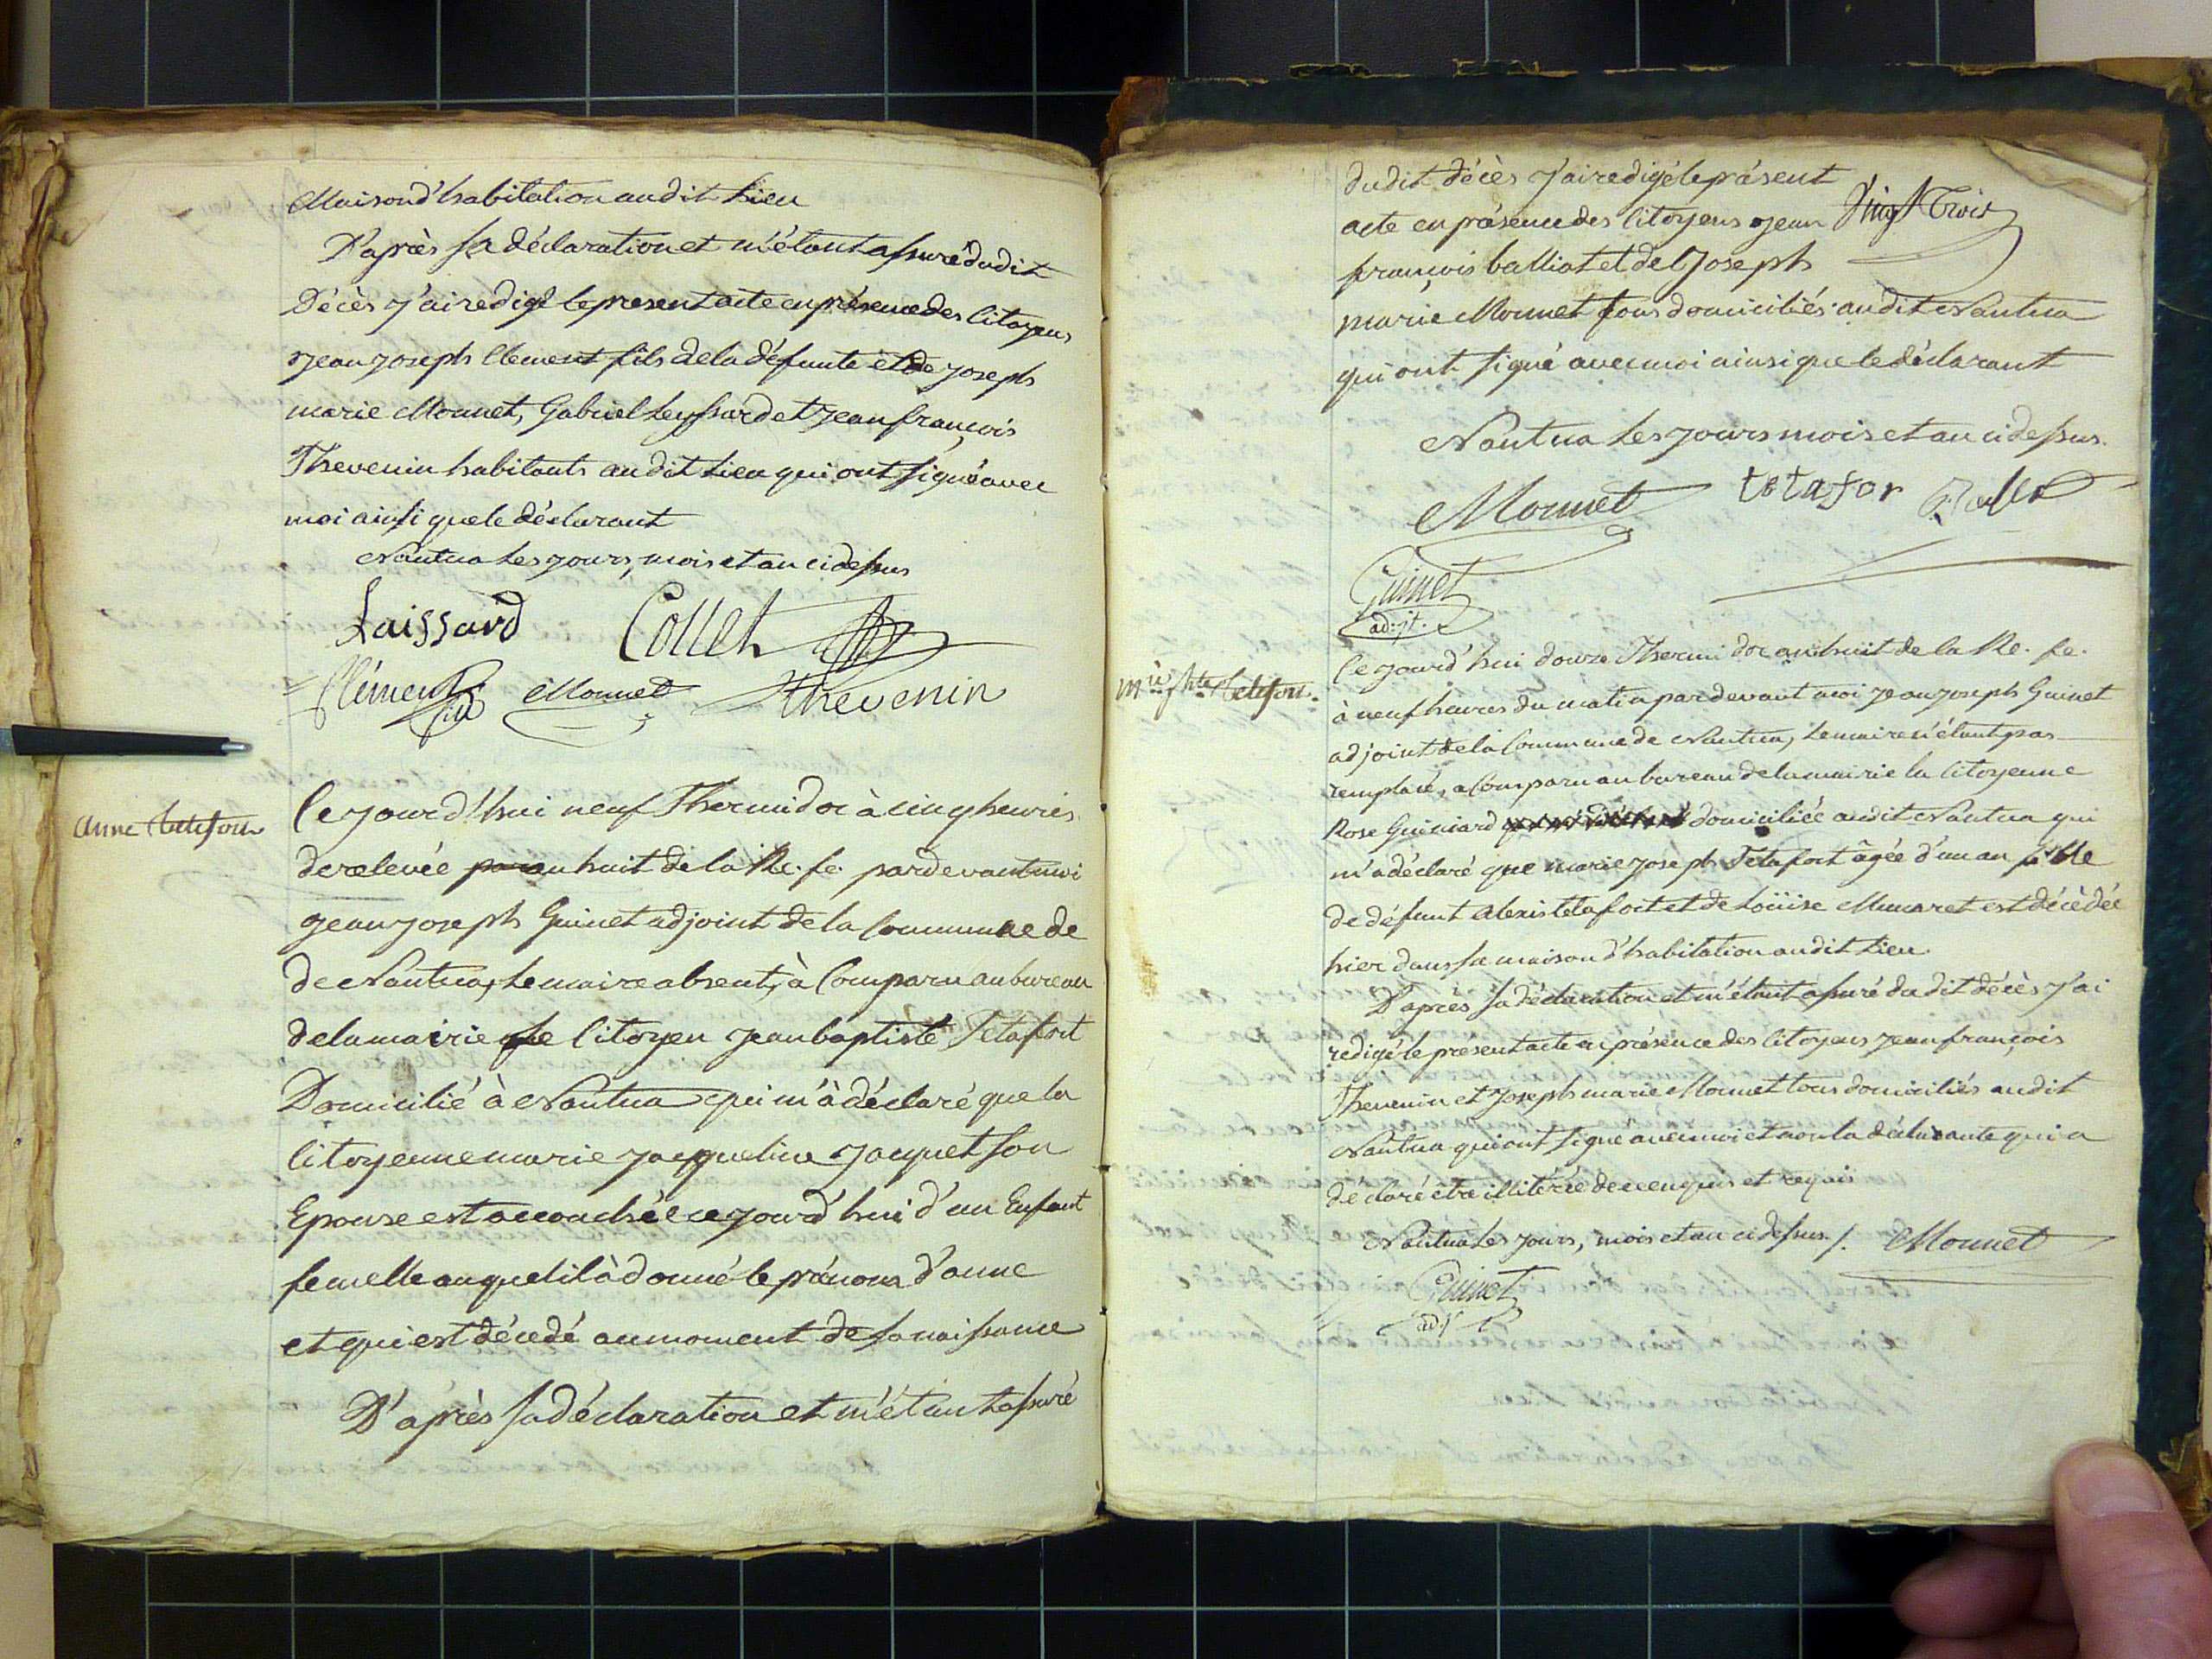 Maison d'habitation audit Lieu
D'après sa déclaration et m'étant assuré dudit
Décès j'ai redigé le present acte en présence des Citoyens
Jean Joseph Clement fils de la défunte et de Joseph
marie Monnet, Gabriel Leyssard et Jean françois
Thevenin habitants audit Lieu qui ont signé avec
moi ainsi que le déclarant
Nantua Les jours, mois et an ci dessus
Laissard Collet
Clément fils Monnet Thevenin
anne
Ce jourd'hui neuf Thermidor à cinq heures
de relevée an huit de la Re. fe. pardevant moi
jean joseph Guinet adjoint de la Commune de
de Nantua, Le maire absent, à Comparu au bureau
de la mairie Le Citoyen jean baptiste Tetafort
Domicilié à Nantua qui m'à déclaré que la
Citoyenne marie jacqueline jacquet son
Epouse est accouchée ce jourd'hui d'un Enfant
femelle auquel il à donné le prénom d'anne
et qui est décedé au moment de sa naissance
D'après sa déclaration et m'étant assuré
dudit décès j'ai redigé le présent
acte en présence des Citoyens jean Vingt Trois
françois balliat et de Joseph
marie Monnet tous domiciliés audit Nantua
qui ont signé avec moi ainsi que le déclarant
Nantua Les jours mois et an ci dessus.
Monnet tetafor
Guinet
adjt.
Ce jourd'hui douze Thermidor an huit de la Re. fe.
Mie Jhe
à neuf heures du matin pardevant moi jean joseph Guinet
adjoint de la Commune de Nantua, Le maire n'étant pas
remplacé, a Comparu au bureau de la mairie la Citoyenne
Rose Guiniard domiciliée audit Nantua qui
m'a déclaré que marie joseph Tetafort âgée d'un an fille
de défunt alexis tetafort et de Loüise Munaret est décèdée
hier dans sa maison d'habitation audit Lieu
D'après sa déclaration et m'étant assuré dudit décès j'ai
redigé le présent acte en présence des Citoyens jean françois
Thevenin et Joseph marie Monnet tous domiciliés audit
Nantua qui ont signé avec moi et non la déclarante qui a
déclaré être illitérée de ce enquis et requis
Nantua Les jours, mois et an ci dessus. /. Monnet
Guinet
adjt